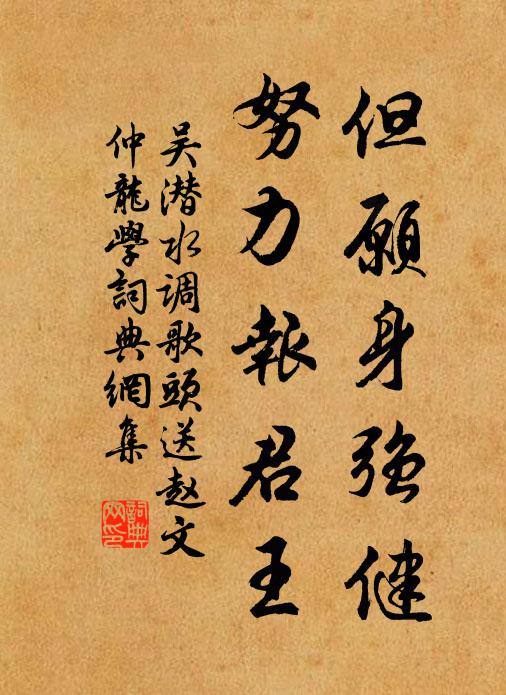 但願身強健
努力報君王
吴潜水调歌頭送赵文
仲龍學詞典網集
詞典
网印